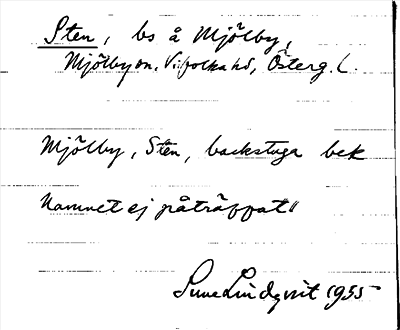 Sten, bs å Mjölby,
Mjölby sn. Vifolka hd, Österg. l.
Mjölby, Sten, backstuga bek
Namnet ej påträffat"
Sune Lindqvist 1935